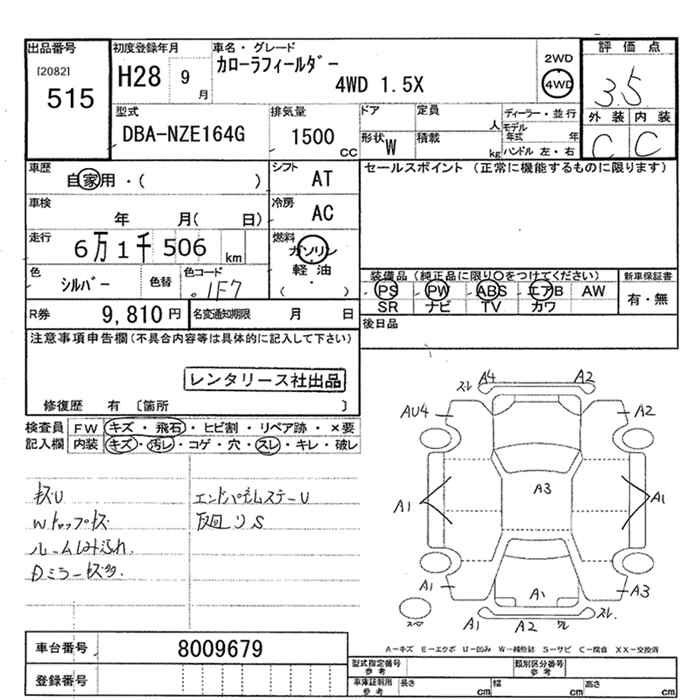 出品番号
[2082]
515
初度登録年月
H28 9 月
車名・グレード
カローラフィールダー
4WD 1.5X
2WD
4WD
評価点
3.5
外装 内装
C C
型式
DBA-NZE164G
排気量
1500 CC
ドア
定員 人
形状 W
積載 kg
ディーラー・並行
モデル年式 年
ハンドル 左・右
車歴
自家用・( )
シフト
AT
セールスポイント (正常に機能するものに限ります)
車検
年 月( 日)
冷房
AC
走行
6万1千506 km
燃料
ガソリン
軽油
( )
色
シルバー
色替
色コード
1F7
装備品(純正品に限り○をつけてください)
PS PW ABS エアB AW
SR ナビ TV カワ
新車保証書
有・無
R券
9,810円
名変通知期限 月 日
後日品
注意事項申告欄(不具合内容等は具体的に記入して下さい)
レンタリース社出品
修復歴 有 〔箇所 〕
検査員記入欄
FW キズ・飛石・ヒビ割・リペア跡・×要
内装 キズ・汚レ・コゲ・穴・スレ・キレ・破レ
キズU
Wトップキズ
ルーム内汚れ
Dミラーキズ多
下回りS
スレ A4 A2
AU4 A2
A3
A1 A1
A1 A3
A1 A2 ワレ スレ
A-キズ E-エクボ U-凹み W-補修跡 S-サビ C-腐食 XX-交換済
車台番号
8009679
登録番号
型式指定番号 参考
類別区分番号 参考
車庫証明用 参考
長さ cm 幅 cm 高さ cm